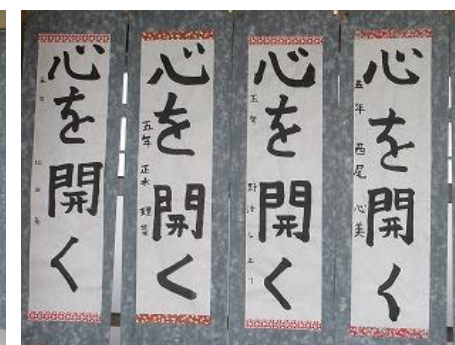 心を開く
五年 西尾 心美
心を開く
五年
心を開く
五年 正木
心を開く
五年